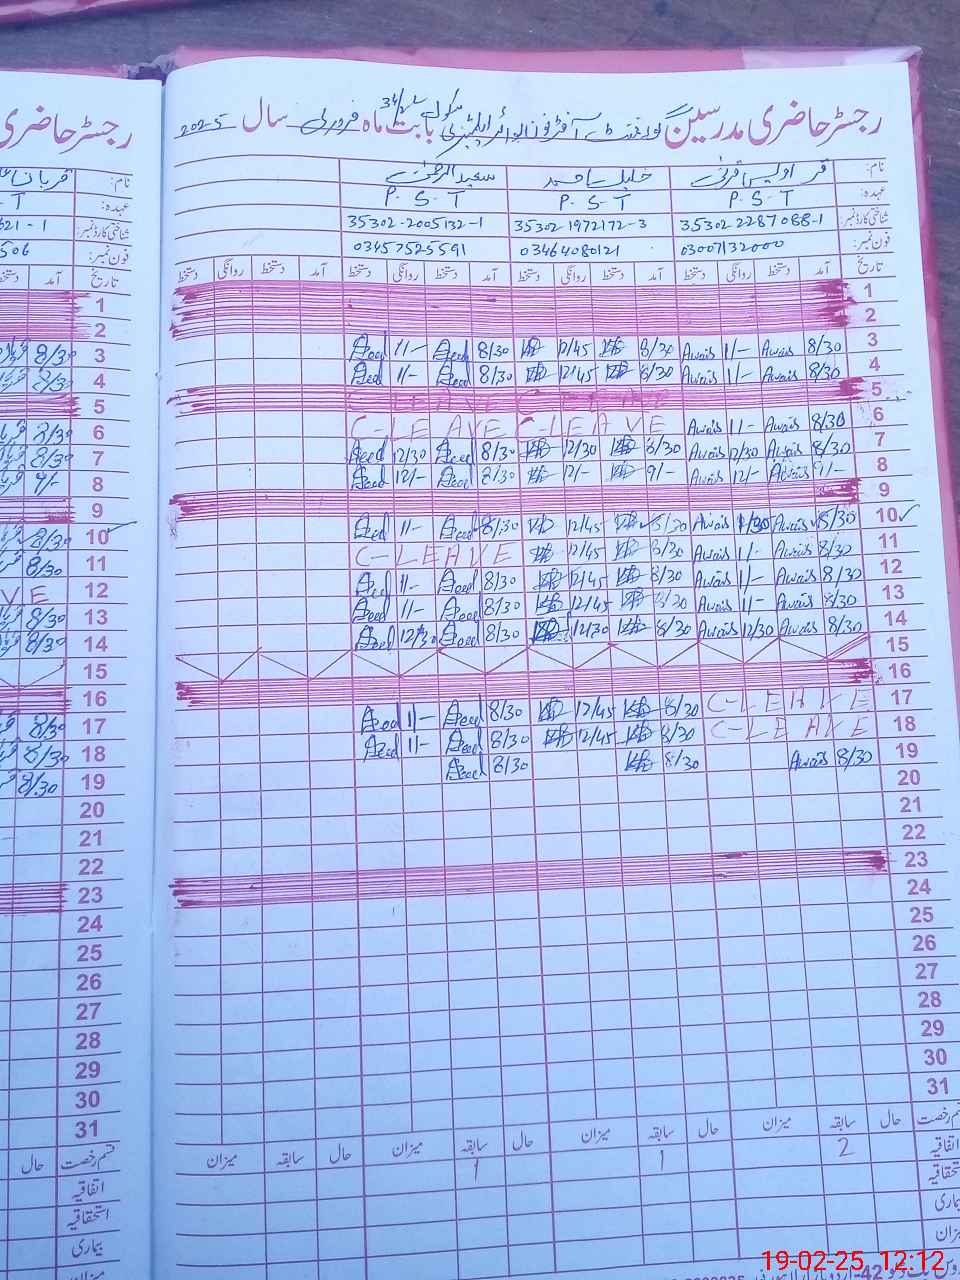 رجسٹر حاضری مدرسین گورنمنٹ آفٹر نون بوائز ایلیمنٹری سکول 34/2L بابت ماہ فروری سال 2025
نام: قمر اویس قرنی خلیل احمد سعید الرحمن
عہدہ: P.S.T P.S.T P.S.T
شناختی کارڈ نمبر: 35302 2287088-1 35302 1972172-3 35302-2005132-1
فون نمبر: 03007132000 03464080121 03457525591
تاریخ آمد دستخط روانگی دستخط آمد دستخط روانگی دستخط آمد دستخط روانگی دستخط آمد دستخط روانگی دستخط
1
2
3 8/30 Awais 1/- Awais 8/30 12/45 8/30 Saeed 1/- Saeed
4 8/30 Awais 1/- Awais 8/30 12/45 8/30 Saeed 1/- Saeed
5
6 8/30 Awais 1/- Awais C-LEAVE C-LEAVE
7 8/30 Awais 12/30 Awais 8/30 12/30 8/30 Saeed 12/30 Saeed
8 9/- Awais 12/- Awais 9/- 12/- 8/30 Saeed 12/- Saeed
9
10 8/30 Awais 1/30 Awais 8/30 12/45 8/30 Saeed 1/- Saeed
11 8/30 Awais 1/- Awais 8/30 12/45 C-LEAVE
12 8/30 Awais 1/- Awais 8/30 12/45 8/30 Saeed 1/- Saeed
13 8/30 Awais 1/- Awais 8/30 12/45 8/30 Saeed 1/- Saeed
14 8/30 Awais 12/30 Awais 8/30 12/30 8/30 Saeed 12/30 Saeed
15
16
17 C-LEAVE 8/30 12/45 8/30 Saeed 1/- Saeed
18 C-LEAVE 8/30 12/45 8/30 Saeed 1/- Saeed
19 8/30 Awais 8/30 8/30 Saeed
20
21
22
23
24
25
26
27
28
29
30
31
قسم رخصت حال سابقہ میزان حال سابقہ میزان حال سابقہ میزان حال سابقہ میزان
اتفاقیہ 2 1 1
استحقاقیہ
بیماری
میزان
رجسٹر حاضری
نام:
عہدہ:
شناختی کارڈ نمبر: 621-1
فون نمبر: 506
تاریخ آمد
1
2
3 8/30
4 8/30
5
6 8/30
7 8/30
8 9/-
9
10 8/30
11 8/30
12 VE
13 8/30
14 8/30
15
16
17 8/30
18 8/30
19 8/30
20
21
22
23
24
25
26
27
28
29
30
31
قسم رخصت حال
اتفاقیہ
استحقاقیہ
بیماری
میزان
19-02-25 12:12